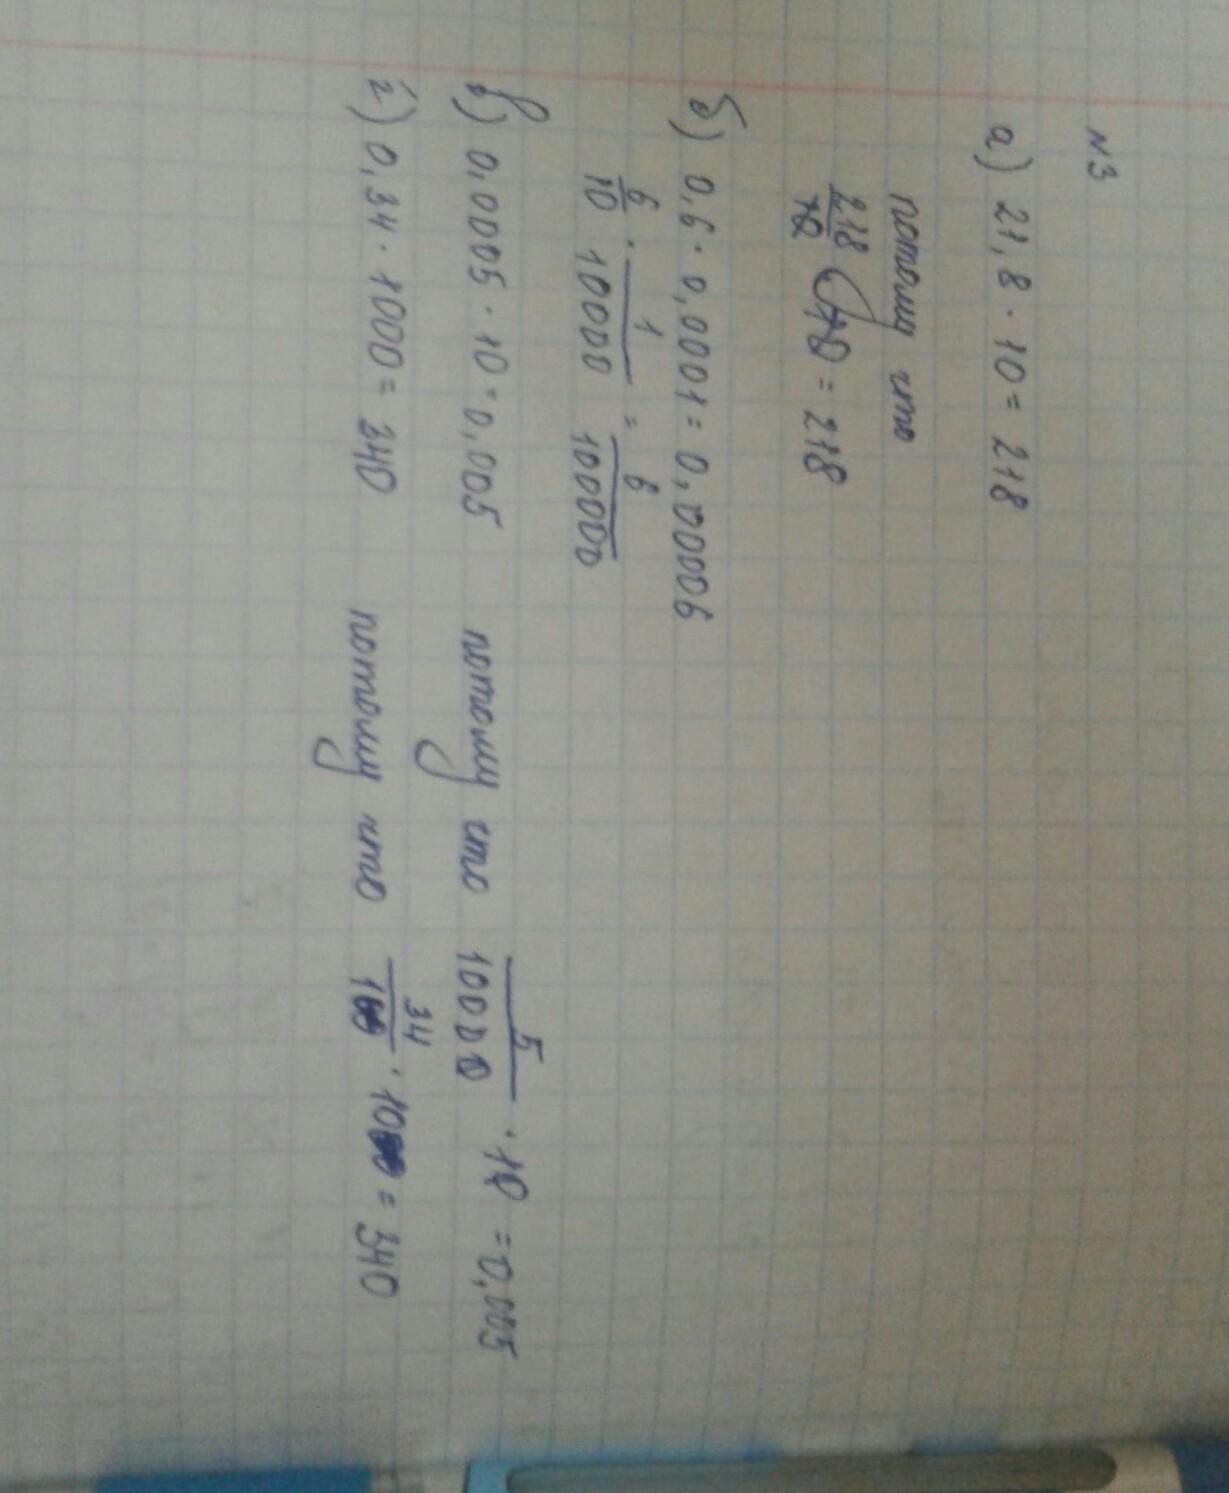 №3
а) 21,8 · 10 = 218
потому что
218/10 · 10 = 218
б) 0,6 · 0,0001 = 0,00006
6/10 · 1/10000 = 6/100000
в) 0,0005 · 10 = 0,005 потому что 5/10000 · 10 = 0,005
г) 0,34 · 1000 = 340 потому что 34/100 · 1000 = 340